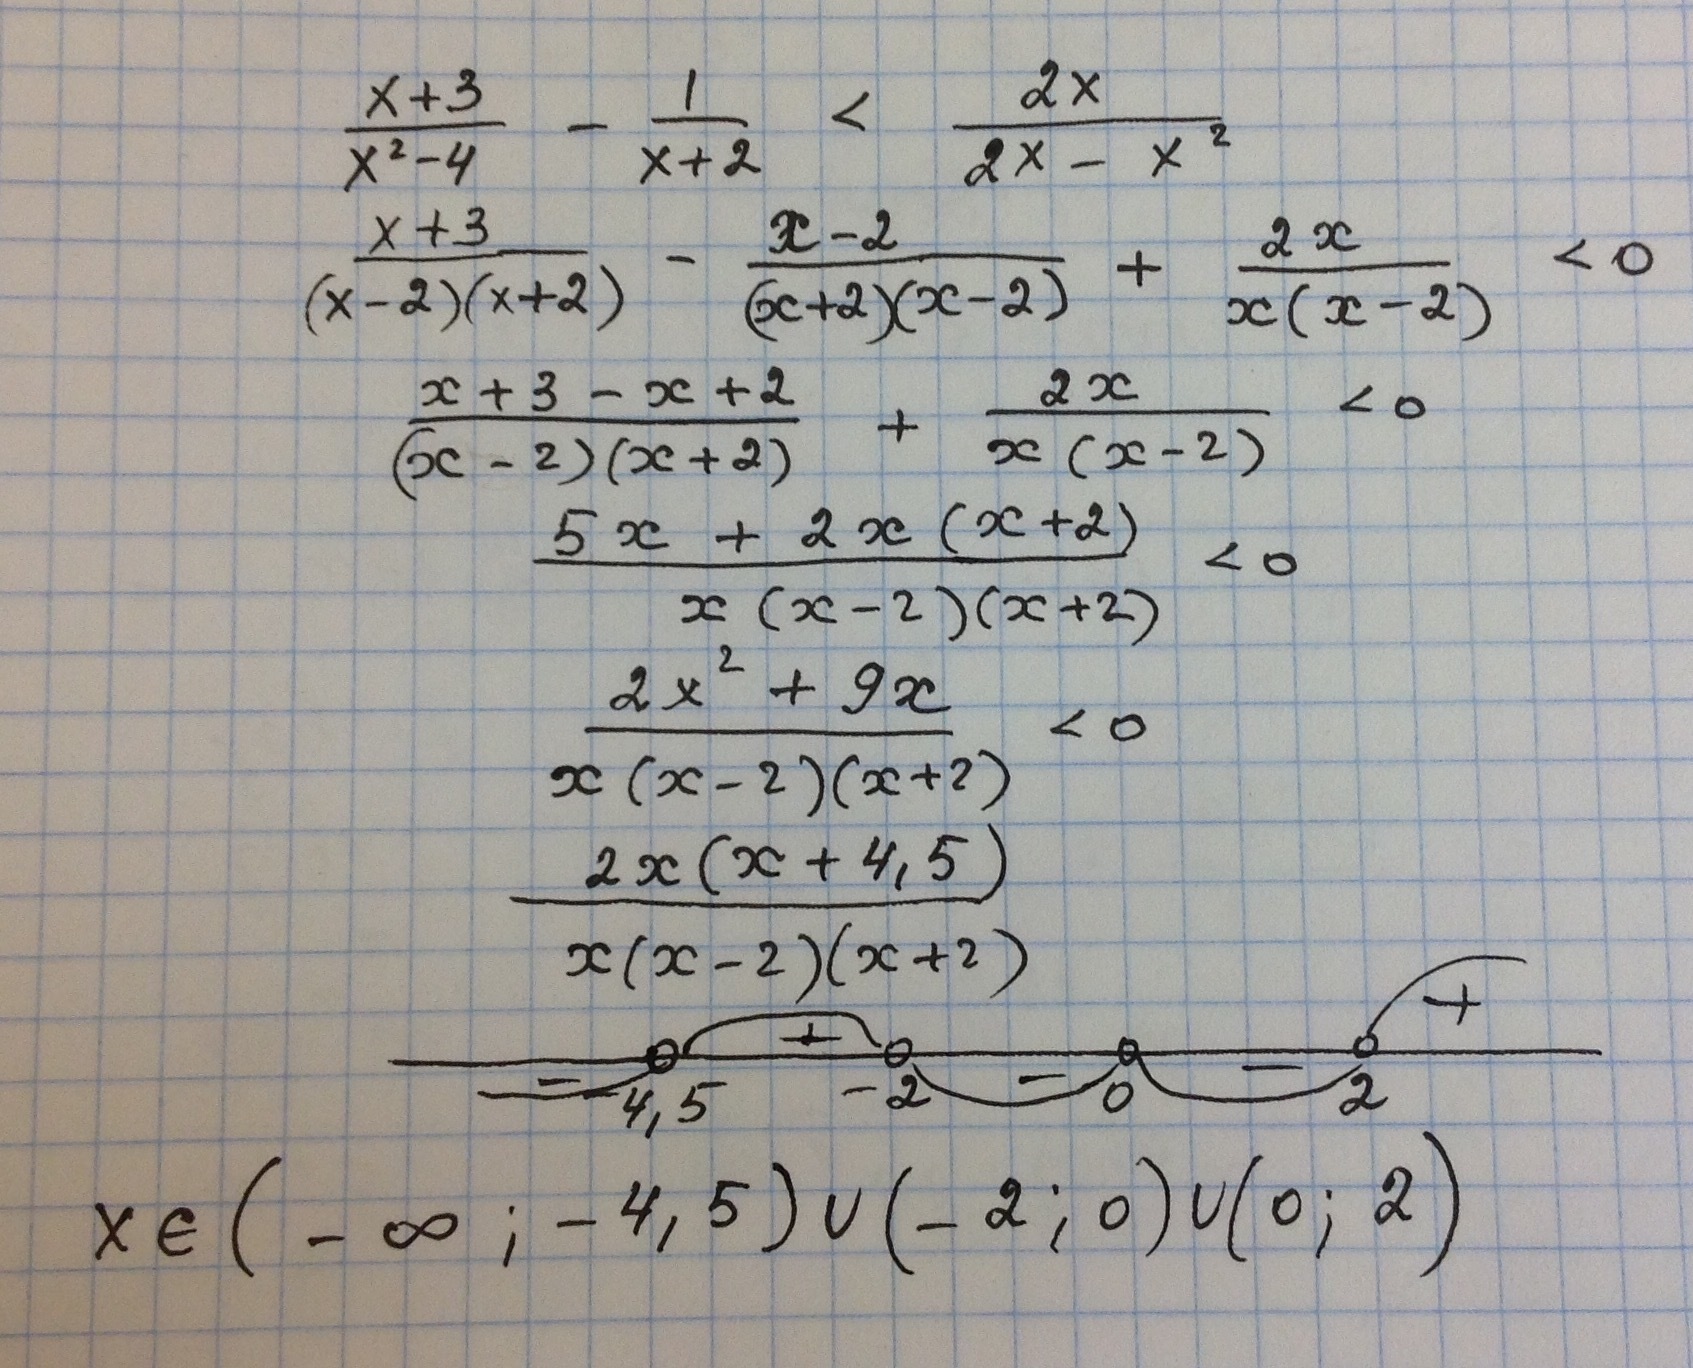 (x+3)/(x²-4) - 1/(x+2) < 2x/(2x - x²)
(x+3)/((x-2)(x+2)) - (x-2)/((x+2)(x-2)) + 2x/(x(x-2)) <0
(x+3-x+2)/((x-2)(x+2)) + 2x/(x(x-2)) <0
(5x + 2x(x+2))/(x(x-2)(x+2)) <0
(2x² + 9x)/(x(x-2)(x+2)) <0
2x(x+4,5)/(x(x-2)(x+2))
- + - - +
-4,5 -2 0 2
x∈(-∞; -4,5)∪(-2; 0)∪(0; 2)